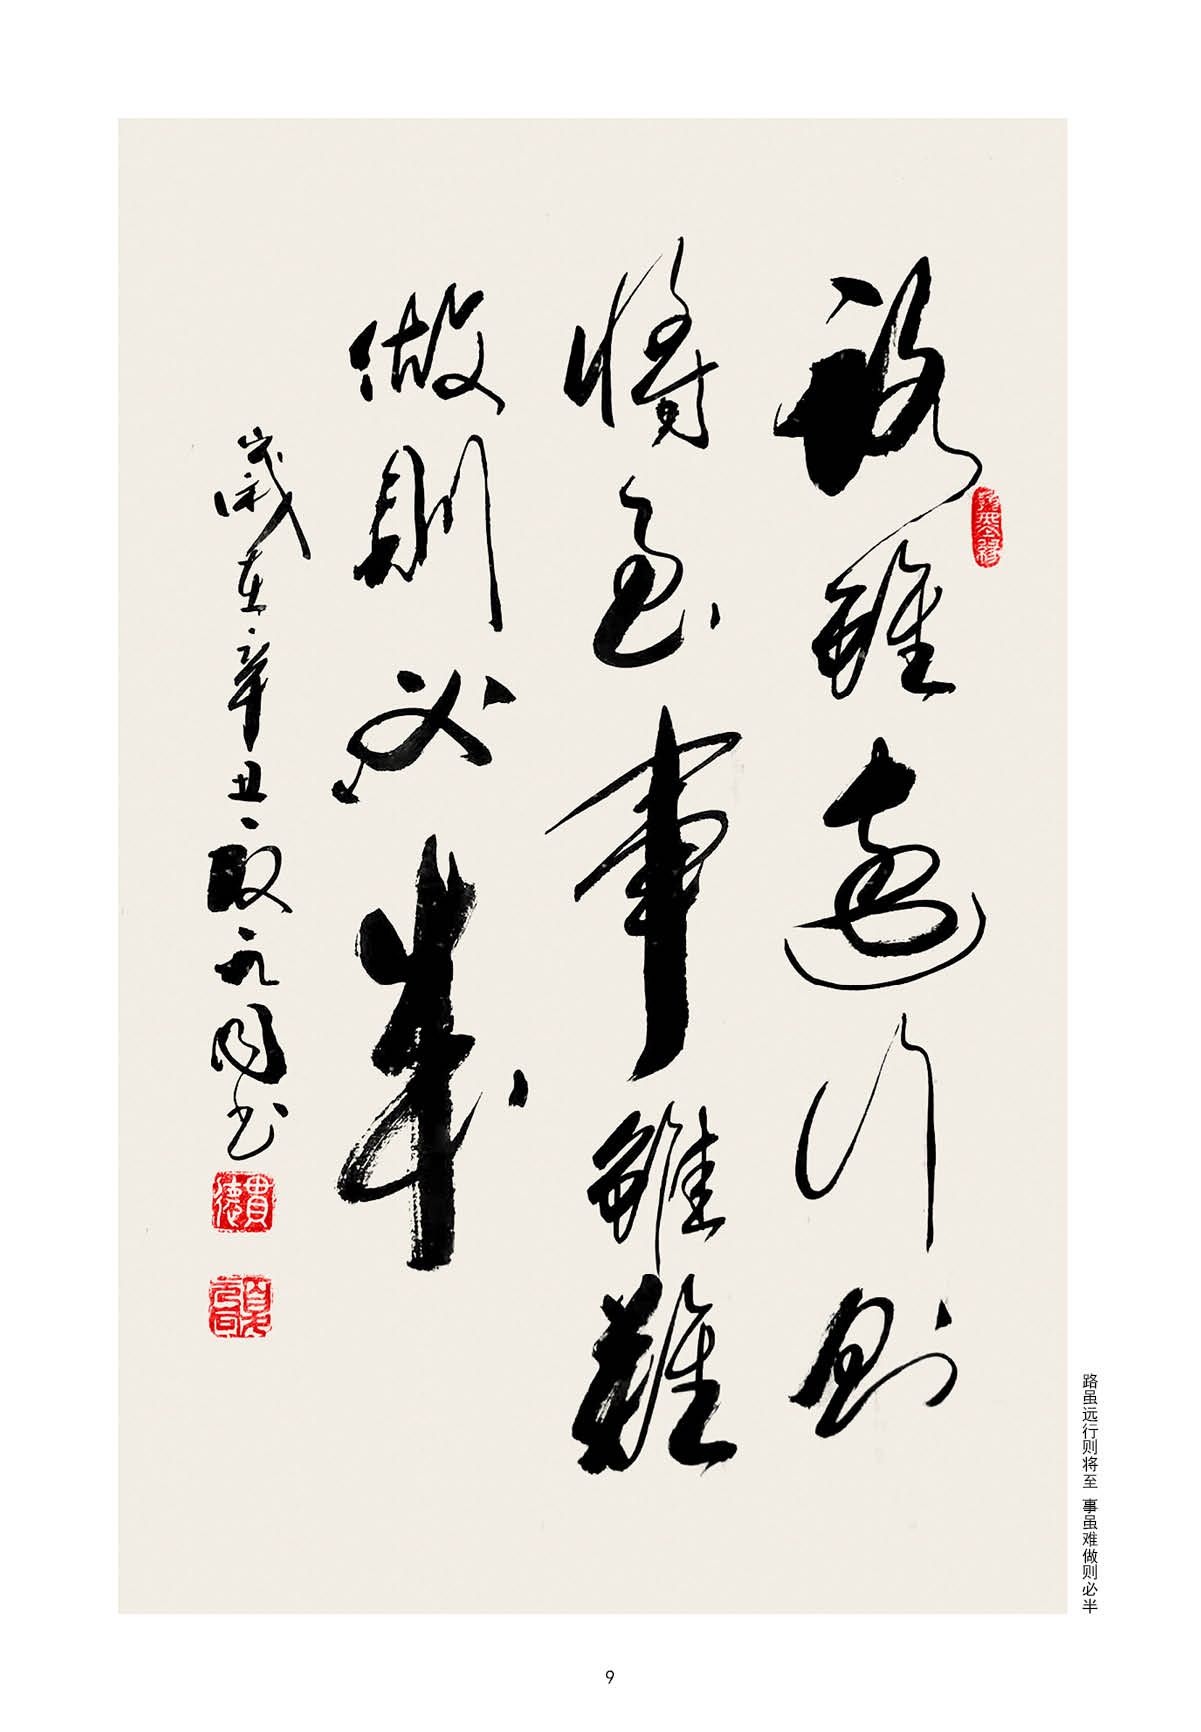 路雖遠行則
將至事雖難
做則必成
歲在辛丑元同书
貴德
路虽远行则将至 事虽难做则必半
9